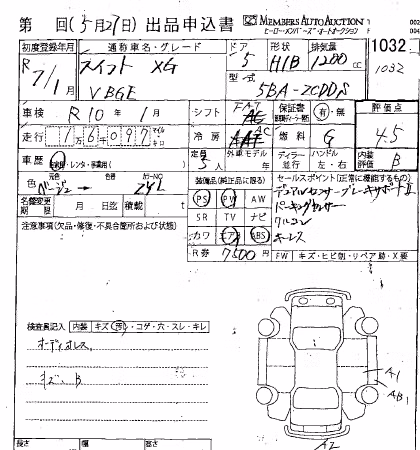 第 回(5月27日)出品申込書 MEMBERS AUTO AUCTION
ヒーロー・メンバーズ・オートオークション
初度登録年月 通称車名・グレード ドア 形状 排気量 1032
R7/1 スイフト XG 5 H/B 1200 cc 1032
VBGE 型式 5BA-ZCDDS
車検 R10年1月 シフト FAT 保証書 有・無 評価点
走行 1万6千097 冷房 AAC 燃料 G 4.5
車歴 自家用・レンタ・事業用( ) 定員 5人 外車モデル 年 ディーラー 並行 ハンドル 左・右 内装評価 B
色 元色 ベージュ → 色替 カラーNO ZYL
装備品(純正品に限る) セールスポイント(正常に機能するもの)
名義変更期限 月 日迄 積載 t
PS PW AW デュアルセンサーブレーキサポートII
SR TV ナビ パーキングセンサー
カワ エアB ABS クルコン
キーレス
注意事項(欠品・修復・不具合箇所および状態)
R券 7500円 FW キズ・ヒビ割・リペア跡・X要
検査員記入 内装 キズ・汚・コゲ・穴・スレ・キレ
オーディオレス
キズ、B
A1
AB1
A2
長さ 幅 高さ